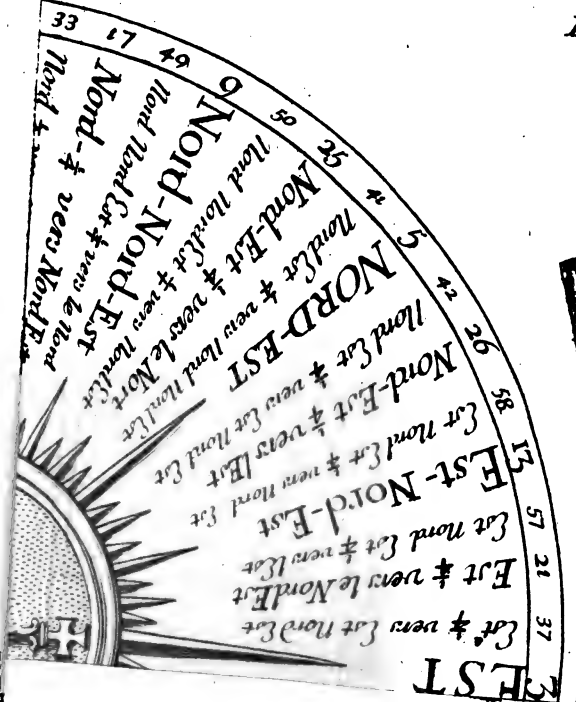 33
17
49
9
50
25
41
5
42
26
58
13
57
21
37
3
Nord ¼
Nord-¼ vers NordEst
Nord Nord Est ¼ vers le Nord
Nord-Nord-Est
Nord NordEst ¼ vers NordEst
Nord-Est ¼ vers le Nort
NordEst ¼ vers Nord Nord Est
NORD-EST
Nord Est ¼ vers Est Nord Est
Nord-Est ¼ vers lEst
Est Nord Est ¼ vers Nord Est
Est-Nord-Est
Est Nord Est ¼ vers lEst
Est ¼ vers le NordEst
Est ¼ vers Est Nord Est
EST